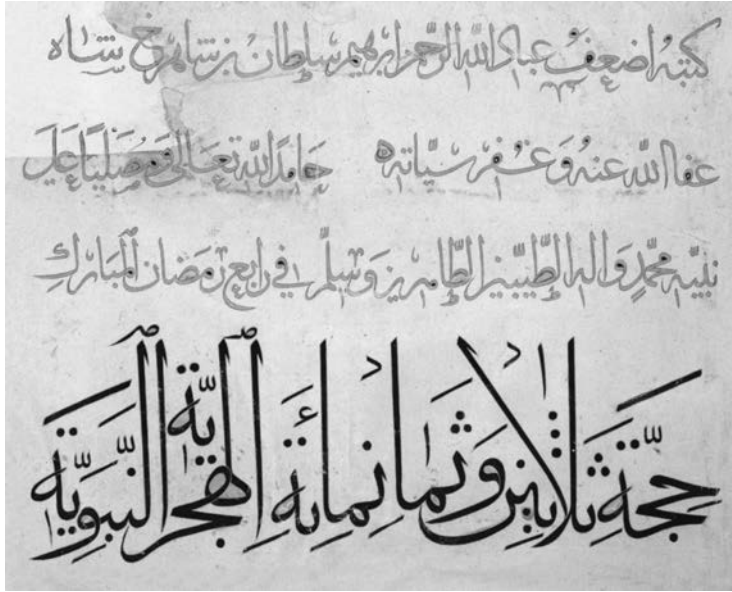 كتبه اضعف عباد الله الرحمن ابرهيم سلطان بن شاهرخ شاه
عفا الله عنه وغفر سيّاته حامدًا لله تعالى ومصليًا على
نبيّه محمّدٍ واله الطّيبين الطّاهرين وسلّم في رابع رمضان المبارك
حجّة ثلاثين وثمانمائة الهجريّة النّبويّة